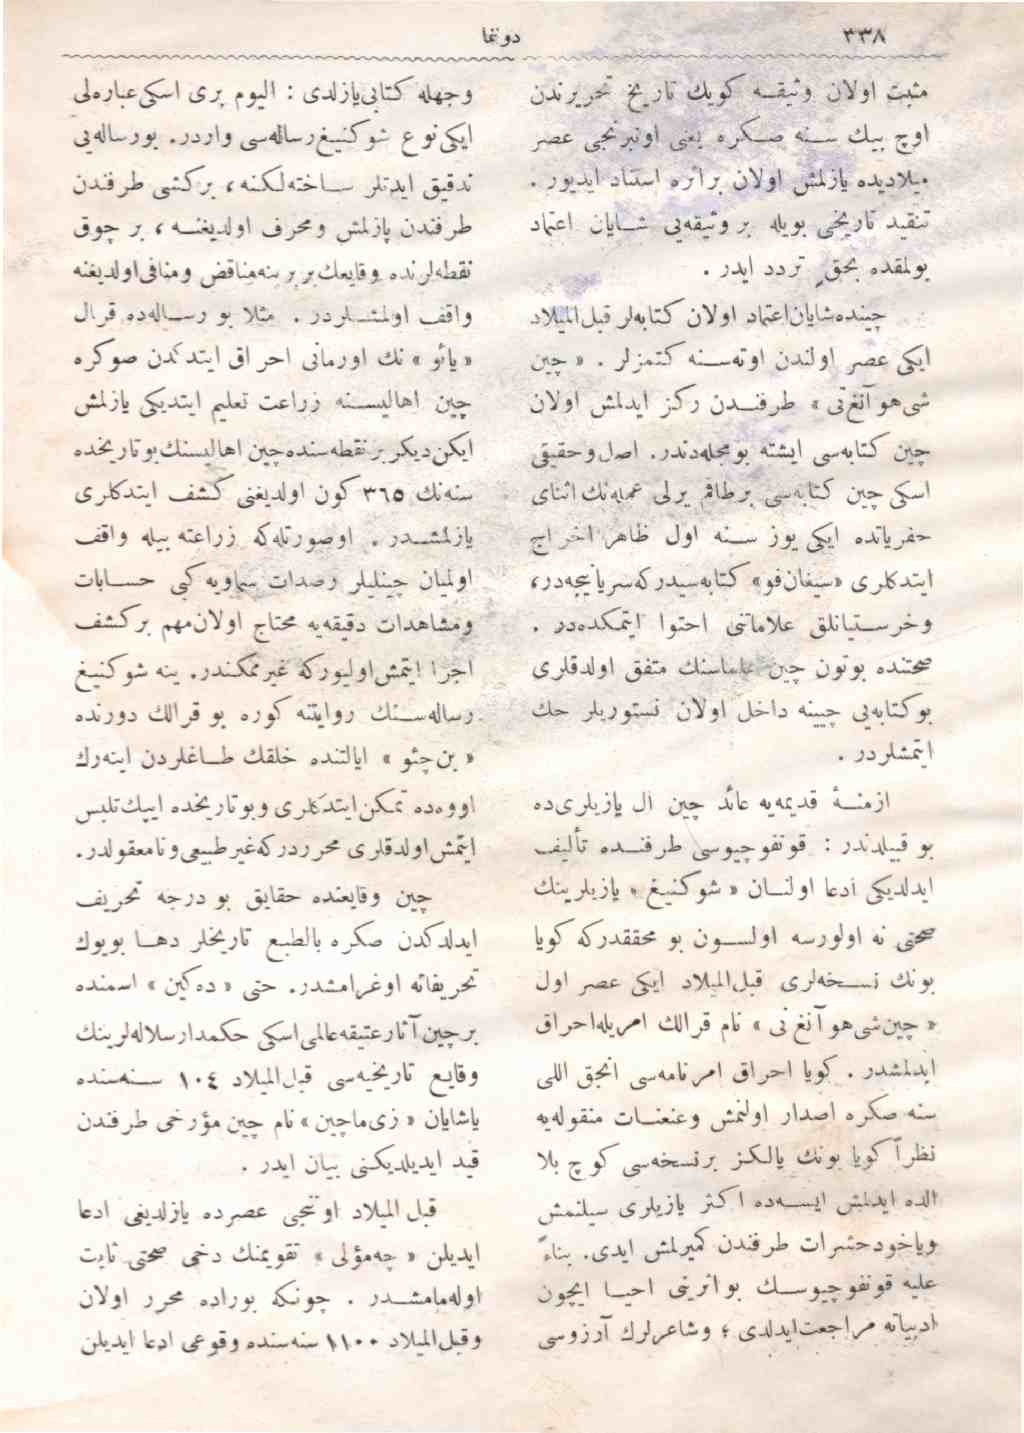 ٣٣٨
دوننما
مثبت اولان وثیقـه کویك تاریخ تحریرندن
اوچ بیك سـنه صـکره یعنی اونبرنجی عصر
میلادیده یازلمش اولان براثره استناد ایدیور .
تنقید تاریخی بویله بر وثیقه‌یی شـایان اعتماد
بولمقده بحقٍ تردد ایدر .
چینده‌شایان‌اعتماد اولان کتابه‌لر قبل‌المیلاد
ایکی عصر اولندن اوته‌سـنه کتمزلر . « چین
شی‌هوآنغ‌تی » طرفنـدن رکز ایدلمش اولان
چین کتابه‌سی ایشته بومجله‌دندر. اصل‌وحقیقی
اسکی چین کتابه‌سی برطاقم یرلی عمله‌نك اثنای
حفریاتده ایکی یوز سـنه اول ظاهرا اخراج
ایتدکلری «سیغان‌فو» کتابه‌سیدرکه‌سریانیجه‌در،
وخرسـتیانلق علاماتنی احتوا ایتمکده‌در .
صحتنده بوتون چین علماسنك متفق اولدقلری
بوکتابه‌یی چینه داخل اولان نستوریلر حك
ایتمشلردر .
ازمنـۀ قدیمه‌یه عائد چین ال یازیلری‌ده
بو قبیلدندر : قونفوچیوسی طرفنـده تألیف
ایدلدیکی ادعا اولنـان « شوکنیغ » یازیلرینك
صحتی نه اولورسه اولسـون بو محققدرکه کویا
بونك نسـخه‌لری قبل‌المیلاد ایکی عصر اول
« چین‌شی‌هوآنغ‌تی » نام قرالك امریله‌احراق
ایدلمشدر . کویا احراق امرنامه‌سی انجق اللی
سنه صکره اصدار اولنمش وعنعنـات منقوله‌یه
نظراً کویا بونك یالکـز برنسخه‌سی کوچ بلا
الده ایدلمش ایسـه‌ده اکثر یازیلری سیلنمش
ویاخود حشرات طرفندن کمیرلمش ایدی. بناءً
علیه قونفوچیوسـك بواثرینی احیـا ایچون
ادبیاته مراجعت‌ایدلدی ؛ وشاعرلرك آرزوسی
وجهله کتابی‌یازلدی : الیوم بری اسکی‌عباره‌لی
ایکی‌نوع شوکنیغ‌رساله‌سی واردر. بورساله‌یی
تدقیق ایدنلر سـاخته‌لکنه، برکشی طرفندن
طرفندن یازلمش ومحرف اولدیغنـه ، بر چوق
نقطه‌لرنده وقایعك‌بربرینه‌مناقض ومنافی‌اولدیغنه
واقف اولمشـلردر . مثلا بو رسـاله‌ده قرال
« یائو » نك اورمانی احراق ایتدکدن صوکره
چین اهالیسـنه زراعت تعلیم ایتدیکی یازلمش
ایکن‌دیکر برنقطه‌سنده‌چین اهالیسنك‌بوتاریخده
سنه‌نك ٣٦٥ کون اولدیغنی کشف ایتدکلری
یازلمشـدر . اوصورتله‌که زراعته بیله واقف
اولمیان چینلیلر رصدات سماویه کبی حسـابات
ومشاهدات دقیقه‌یه محتاج اولان‌مهم برکشف
اجرا ایتمش‌اولیورکه غیرممکندر. ینه شوکنیغ
رساله‌سـنك روایتنه کوره بو قرالك دورنده
« ین‌چئو » ایالتنده خلقك طـاغلردن اینه‌رك
اووه‌ده تمکن‌ایتدکلری وبوتاریخده ایپك‌تلبس
ایتمش‌اولدقلری محرردرکه‌غیرطبیعی‌ونامعقولدر.
چین وقایعنده حقایق بو درجه تحریف
ایدلدکدن صکره بالطبع تاریخلر دهـا بویوك
تحریفاته اوغرامشدر. حتی « ده‌کین » اسمنده
برچین‌آثارعتیقه‌عالمی‌اسکی حکمدارسلاله‌لرینك
وقایـع تاریخیه‌سی قبل‌المیلاد ١٠٤ سـنه‌سنده
یاشایان « زی‌ماچین» نام چین مؤرخی طرفندن
قید ایدیلدیکنی بیان ایدر .
قبل‌المیلاد اوننجی عصرده یازلدیغی ادعا
ایدیلن « چه‌مؤلی » تقویمنك دخی صحتی ثابت
اوله‌مامشـدر . چونکه بوراده محرر اولان
وقبل‌المیلاد ١١٠٠ سنه‌سنده وقوعی ادعا ایدیلن